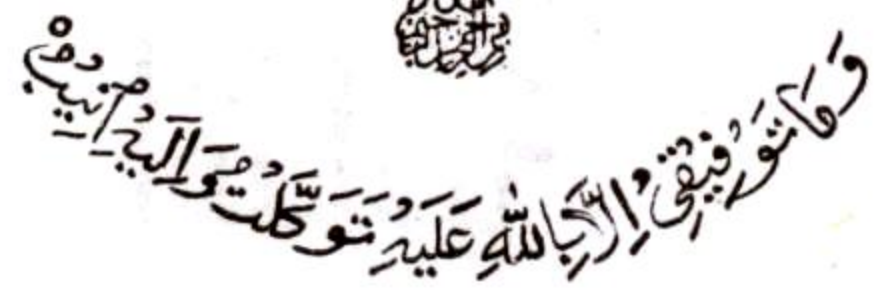 بسم الله الرحمن الرحيم
وَمَا تَوْفِيقِي إِلَّا بِاللَّهِ عَلَيْهِ تَوَكَّلْتُ وَإِلَيْهِ أُنِيبُ